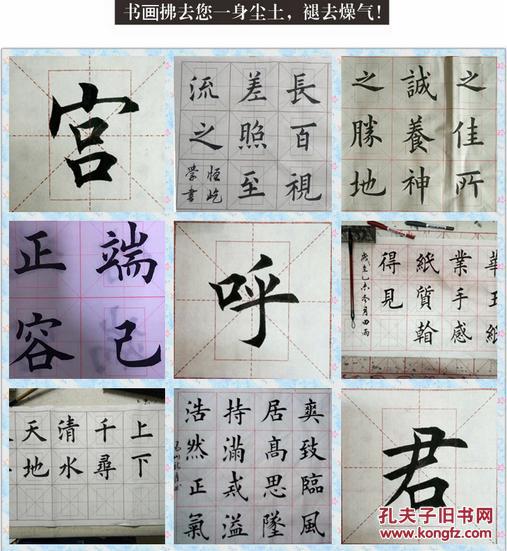 书画拂去您一身尘土，褪去燥气！
宫
長百視
差照至
流之
之佳所
誠養神
之勝地
端己
正容
呼
業手感
紙質翰
得見
上下
千尋
清水
天地
奕致臨風
居高思墜
持滿戒溢
浩然正氣
君
孔夫子旧书网
www.kongfz.com